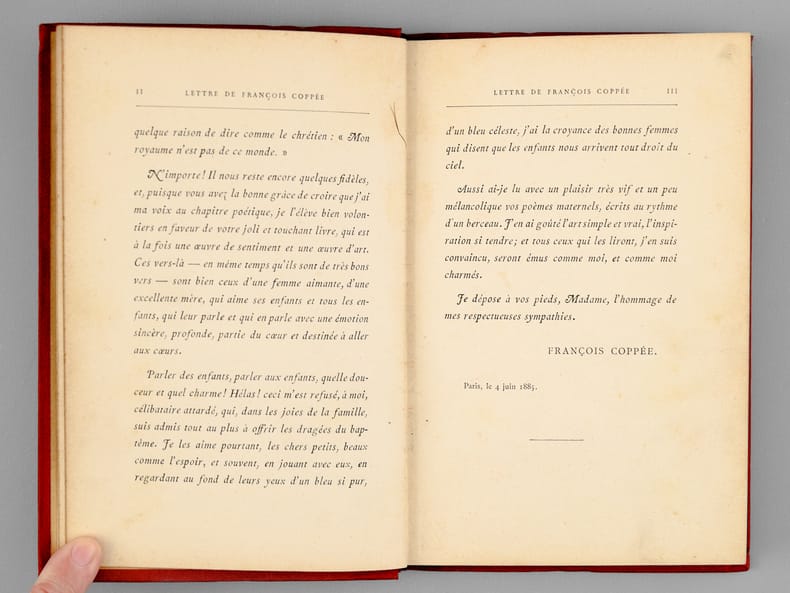 II LETTRE DE FRANÇOIS COPPÉE
quelque raison de dire comme le chrétien : « Mon
royaume n'est pas de ce monde. »
N'importe! Il nous reste encore quelques fidèles,
et, puisque vous avez la bonne grâce de croire que j'ai
ma voix au chapitre poétique, je l'élève bien volon-
tiers en faveur de votre joli et touchant livre, qui est
à la fois une œuvre de sentiment et une œuvre d'art.
Ces vers-là — en même temps qu'ils sont de très bons
vers — sont bien ceux d'une femme aimante, d'une
excellente mère, qui aime ses enfants et tous les en-
fants, qui leur parle et qui en parle avec une émotion
sincère, profonde, partie du cœur et destinée à aller
aux cœurs.
Parler des enfants, parler aux enfants, quelle dou-
ceur et quel charme! Hélas! ceci m'est refusé, à moi,
célibataire attardé, qui, dans les joies de la famille,
suis admis tout au plus à offrir les dragées du bap-
tême. Je les aime pourtant, les chers petits, beaux
comme l'espoir, et souvent, en jouant avec eux, en
regardant au fond de leurs yeux d'un bleu si pur,
LETTRE DE FRANÇOIS COPPÉE III
d'un bleu céleste, j'ai la croyance des bonnes femmes
qui disent que les enfants nous arrivent tout droit du
ciel.
Aussi ai-je lu avec un plaisir très vif et un peu
mélancolique vos poèmes maternels, écrits au rythme
d'un berceau. J'en ai goûté l'art simple et vrai, l'inspi-
ration si tendre; et tous ceux qui les liront, j'en suis
convaincu, seront émus comme moi, et comme moi
charmés.
Je dépose à vos pieds, Madame, l'hommage de
mes respectueuses sympathies.
FRANÇOIS COPPÉE.
Paris, le 4 juin 1885.